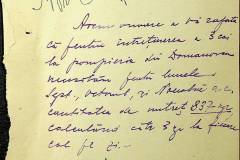 Avem onoare a vă raporta
că pentru întreținerea a 3 cai
la pompieria din Domanovca
necesităm pentru lunele
Sept., Octomb., și Noembrie a.c.
cantitatea de nutreț 837 kg
calculând câte 3 kg la fiecare
cal pe zi.-